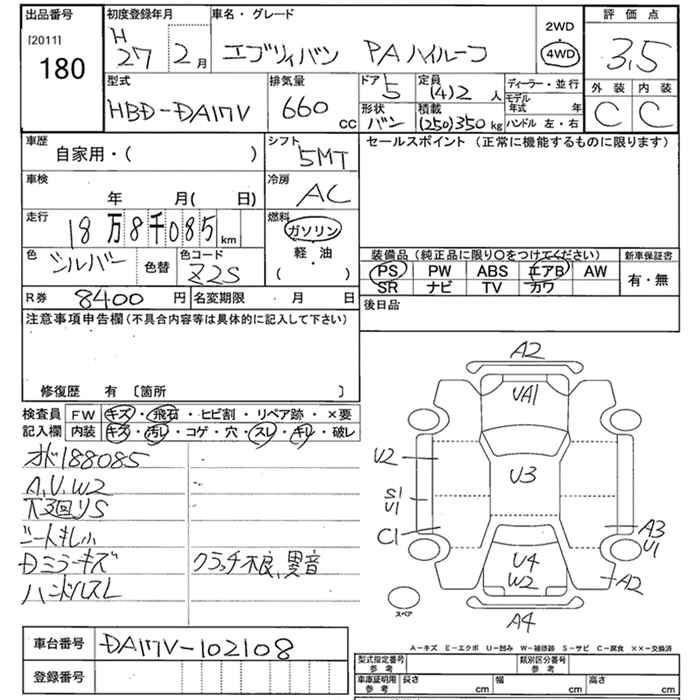 出品番号 初度登録年月 車名・グレード 2WD 評価点
[2011] 180 H 27 2月 エブリイバン PAハイルーフ 4WD 3.5
型式 HBD-DA17V 排気量 660cc ドア 5 定員 (4)2人 ディーラー・並行 外装 C 内装 C
形状 バン 積載 (250)350kg モデル年式 年 ハンドル 左・右
車歴 自家用・( ) シフト 5MT セールスポイント (正常に機能するものに限ります)
車検 年 月( 日) 冷房 AC
走行 18万8千085km 燃料 ガソリン
軽・油
( )
色 シルバー 色替 色コード Z2S 装備品(純正品に限り○をつけてください) 新車保証書
PS PW ABS エアB AW 有・無
SR ナビ TV カワ
R券 8400円 名変期限 月 日 後日品
注意事項申告欄(不具合内容等は具体的に記入して下さい)
修復歴 有 〔箇所 〕
検査員 FW キズ・飛石・ヒビ割・リペア跡・×要
記入欄 内装 キズ・汚レ・コゲ・穴・スレ・キレ・破レ
オド188085
A,U,W2
下回りS
シートキレ小
Dミラーキズ クラッチ不良、異音
ハンドルスレ
A2
UA1
U2 U3
S1
U1
C1 A3
U1
U4
W2 A2
スペア A4
A-キズ E-エクボ U-凹み W-補修跡 S-サビ C-腐食 ××-交換済
車台番号 DA17V-102108
登録番号
型式指定番号 参考 類別区分番号 参考
車庫証明用 参考 長さ cm 幅 cm 高さ cm